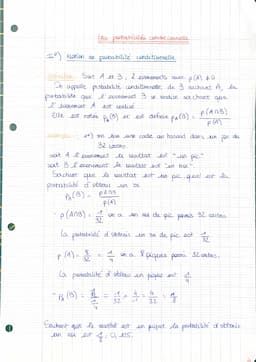 Les probabilités conditionnelles
I-1°) Notion de probabilité conditionnelle
Définition : Soit A et B, 2 évènements avec p(A) ≠ 0
On appelle probabilité conditionnelle de B sachant A, la
probabilité que l'évènement B se réalise sachant que
l'évènement A est réalisé
Elle est notée P_A(B) et est définie P_A(B) = p(A∩B) / p(A)
exemple : 1°) on tire une carte au hasard dans un jeu de
32 cartes.
soit A l'évènement le résultat est "un pic"
soit B l'évènement le résultat est "un roi"
Sachant que le résultat est un pic quel est la
probabilité d'obtenir un roi
P_A(B) = p(A∩B) / p(A)
p(A∩B) = 1/32 on a un roi de pic parmi 32 cartes.
la probabilité d'obtenir un roi de pic est 1/32
p(A) = 8/32 = 1/4 on a 8 piques parmi 32 cartes.
la probabilité d'obtenir un pique est 1/4
P_A(B) = 1/32 / 1/4 = 1/32 × 4 = 4/32 = 1/8
Sachant que le résultat est un pique la probabilité d'obtenir
un roi est 1/8 : 0,125.